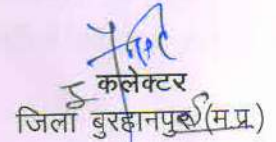 कलेक्टर
जिला बुरहानपुर (म.प्र.)